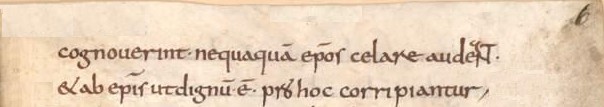 6
cognouerint· nequaquā ep̄os celare audeant·
& ab ep̄is ut dignū·ē· p̱ hoc corripiantur,